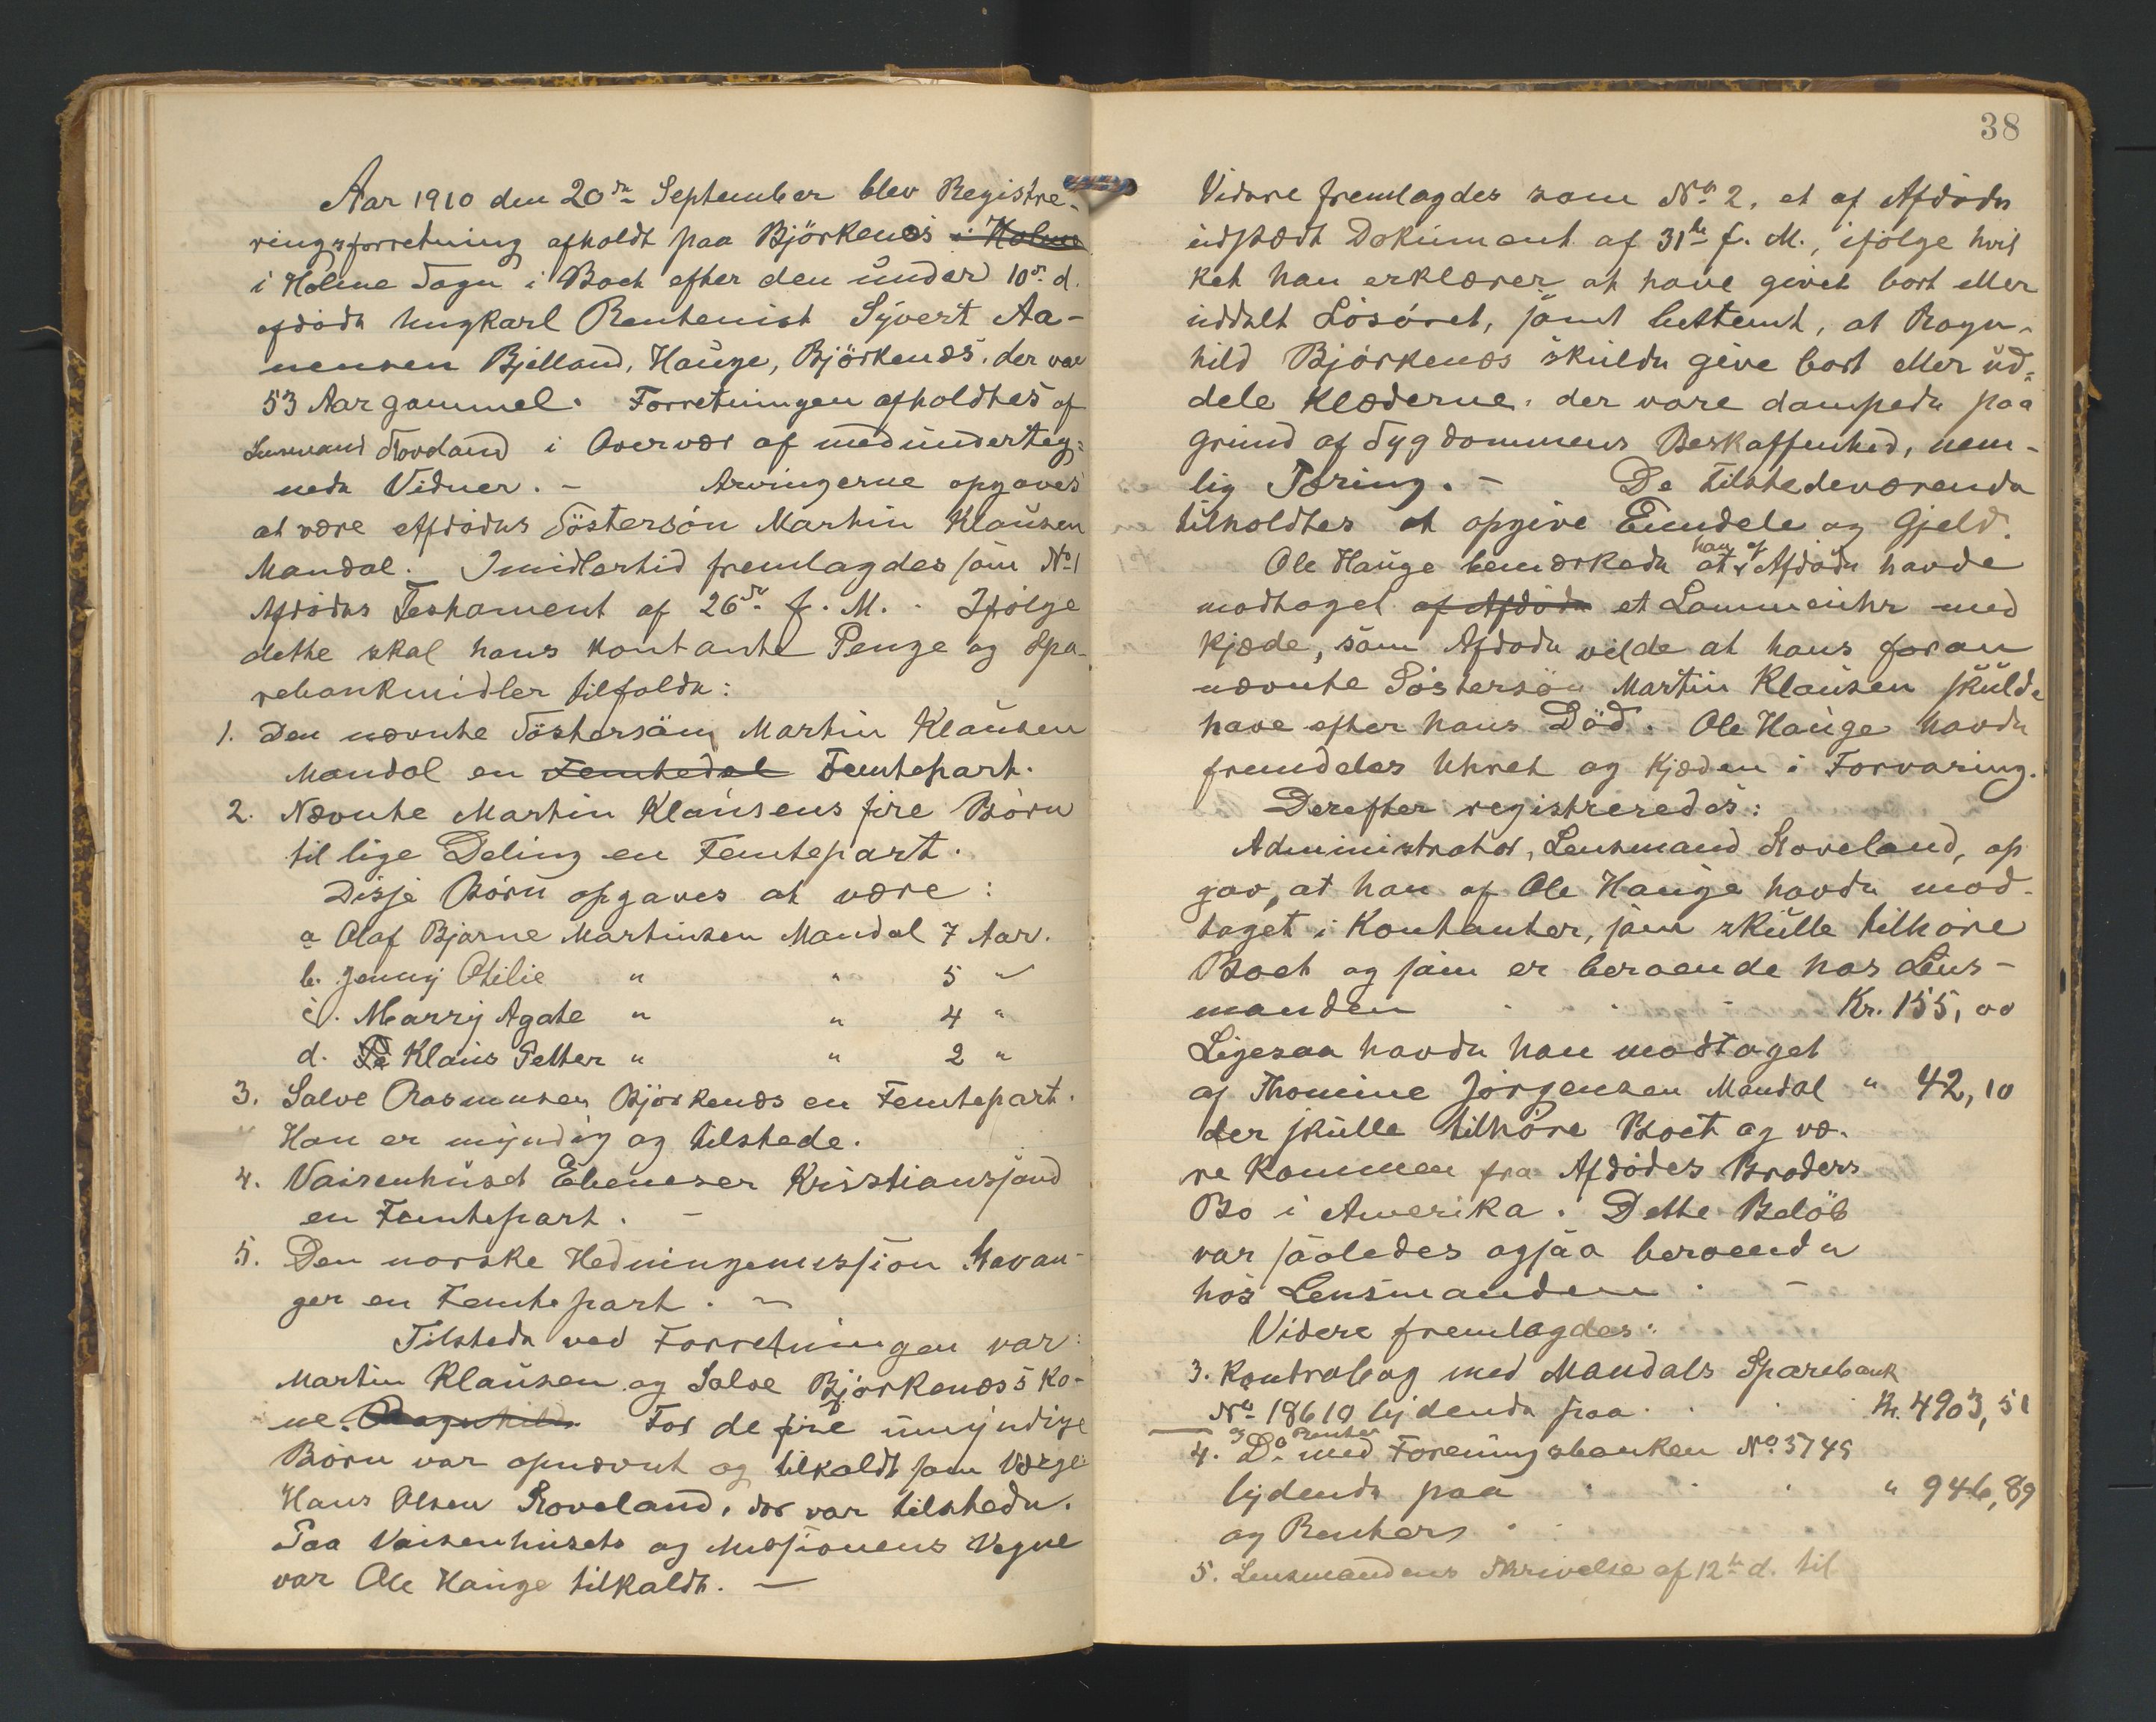 Aar 1910 den 20de September blev Registre-
ringsforretning afholdt paa Björkenes i Holme
i Holme Sogn i Boet efter den under 10de d.
afdøde Ungkarl Rentenist Syvert Aa-
nensen Bjelland, Hauge, Björkenæs, der var
53 Aar gammel. Forretningen afholdtes af
Lensmand i Overvær af medunderteg-
nede Vidner. - Arvingerne opgaves
at være Afdødes Söstersön Martin Klausen
Mandal. Imidlertid fremlagdes som No 1
Afdødes Testament af 26de f. M. Ifølge
dette skal hans kontante Penge og Spa-
rebankmidler tilfalde:
1. Den nævnte Söstersön Martin Klausen
Mandal en Femtedel Femtepart.
2. Nævnte Martin Klausens fire Börn
til lige Deling en Femtepart.
Disse Börn opgaves at være:
a Olaf Bjarne Martinsen Mandal 7 Aar.
b. Jenny Otilie " " 5 "
c. Marry Agate " " 4 "
d. Pe Klaus Petter " " 2 "
3. Salve Rasmusen Björkenæs en Femtepart.
Han er myndig og tilstede.
4. Vaisenhuset Ebeneser Kristianssand
en Femtepart. -
5. Den norske Hedningemission Stavan-
ger en Femtepart. -
Tilstede ved Forretningen var:
Martin Klausen og Salve Björkenæs's Ko-
ne. Ragnhild For de fire umyndige
Börn var opnævnt og tilkaldt som Værge:
Hans Olsen Roveland, der var tilstede.
Paa Vaisenhusets og Missionens Vegne
var Ole Hauge tilkaldt. -
38
Videre fremlagdes som No 2, et af Afdøde
udstædt Dokument af 31te f. M., ifølge hvil
ket han erklærer at have givet bort eller
uddelt Lösöret, samt bestemt, at Ragn-
hild Björkenæs skulde give bort eller ud-
dele Klæderne, der vare dampede paa
Grund af Sygdommens Beskaffenhed, nem-
lig Tæring. - De Tilstedeværende
tilholdtes at opgive Eiendele og Gjeld.
Ole Hauge bemærkede at han af Afdøde havde
modtaget af Afdøde et Lommeuhr med
Kjæde, som Afdøde vilde at hans foran
nævnte Söstersön Martin Klausen skulde
have efter hans Död. Ole Hauge havde
fremdeles Uhret og Kjæden i Forvaring.
Derefter registreredes:
Administrator, Lensmand Roveland, op
gav, at han af Ole Hauge havde mod-
taget i Kontanter, som skulle tilhöre
Boet og som er beroende hos Lens-
manden Kr. 155,00
Ligesaa havde han modtaget
af Thomine Jörgensen Mandal " 42,10
der skulle tilhöre Boet og væ-
re kommen fra Afdödes Broders
Bo i Amerika. Dette Belöb
var saaledes ogsaa beroende
hos Lensmanden. -
Videre fremlagdes:
3. Kontrabog med Mandals Sparebank
No 18610 lydende paa Kr. 4903,51
og Renter
4. Do med Foreningsbanken No 5745
lydende paa " 946,89
og Renter
5. Lensmandens Skrivelse af 12te d. til